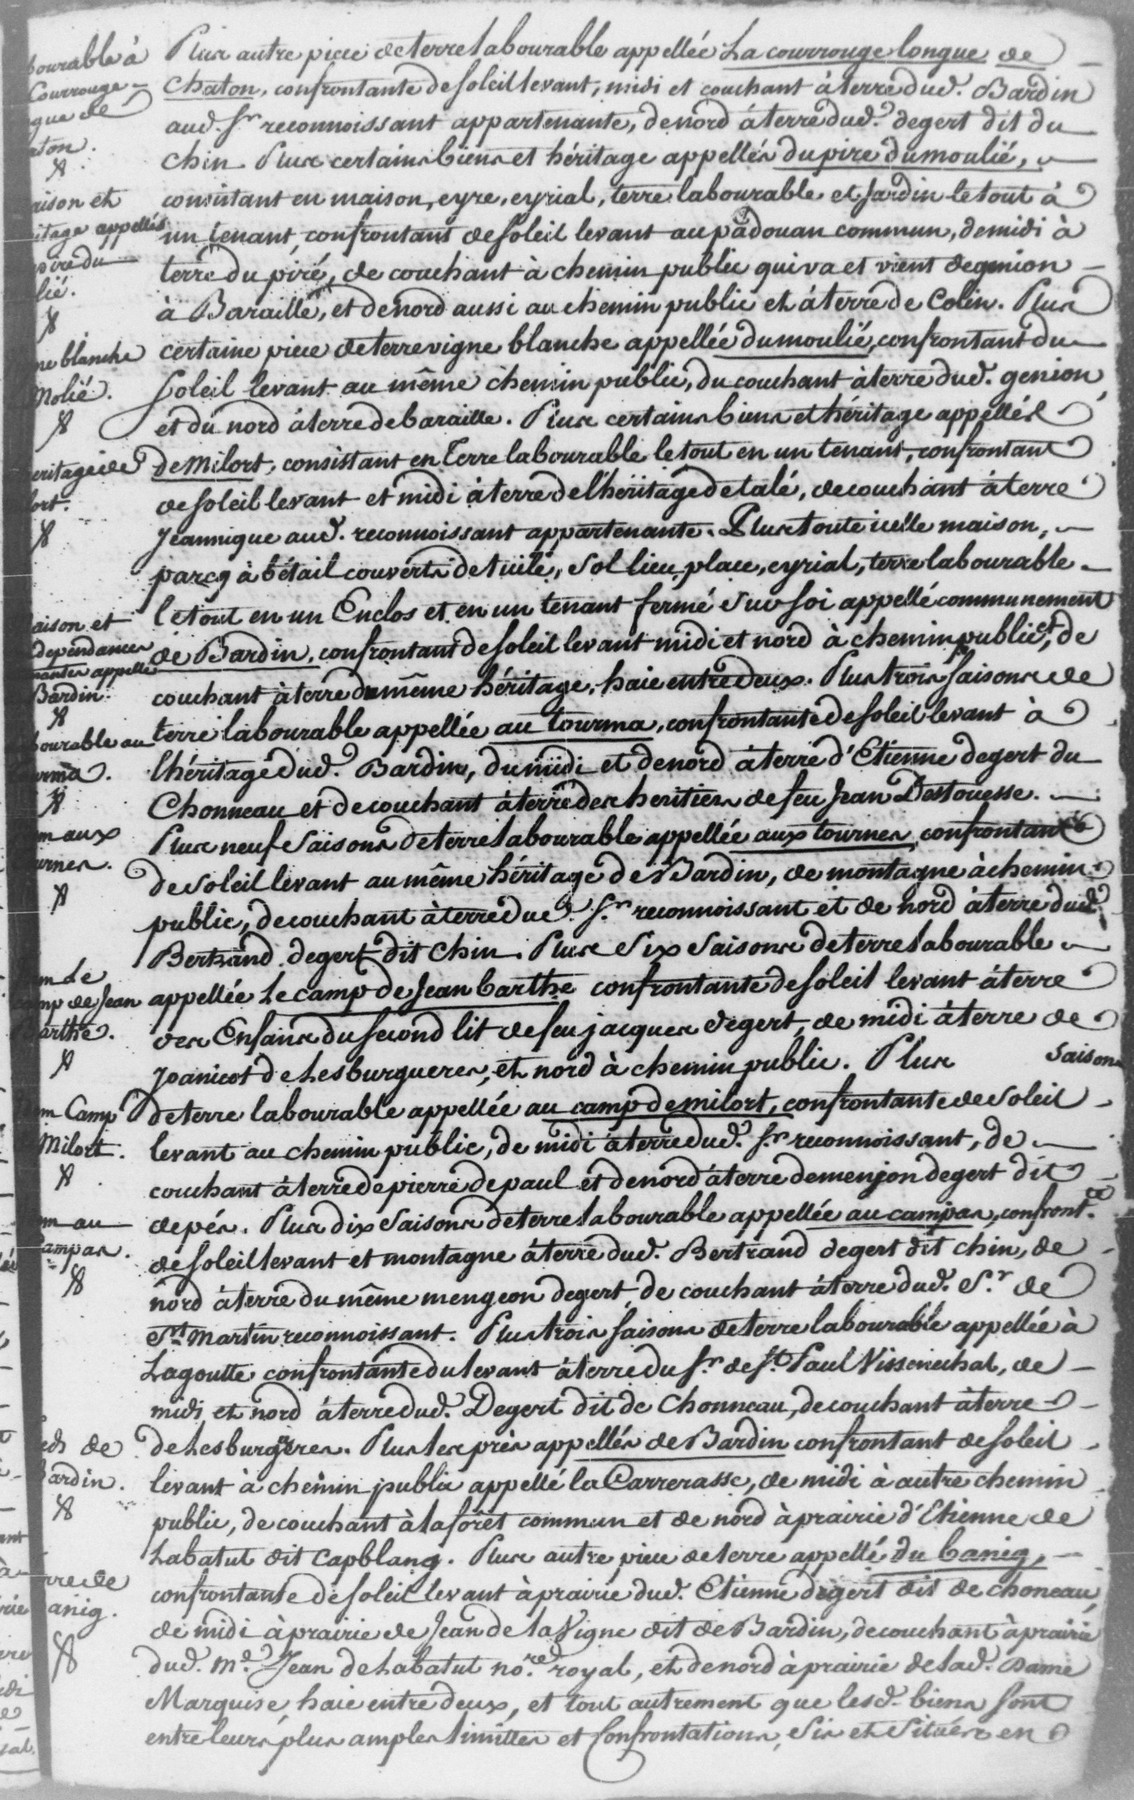 Plus autre piece de terre labourable appellée La courrouge longue de
Chaton, confrontante de soleil levant, midi et couchant à terre dud. Bardin
aud. Sr. reconnoissant appartenante, de nord à terre dud. degert dit du
chin Plus certains biens et héritage appellés du pire du moulié,
consistant en maison, eyre, eyrial, terre labourable et Jardin le tout à
un tenant, confrontant de soleil levant au padouan commun, de midi à
terre du piré, de couchant à chemin public qui va et vient de genion
à Baraille, et de nord aussi au chemin public et à terre de Colin. Plus
certaine piece de terre vigne blanche appellée du moulié, confrontant du
soleil levant au même chemin public, du couchant à terre dud. genion
et du nord à terre de baraille. Plus certains biens et héritage appellés
de Milort, consistant en Terre labourable le tout en un tenant, confrontant
de soleil levant et midi à terre de l'héritage de talé, de couchant à terre
Jeannique aud. reconnoissant appartenante. Plus toute icelle maison,
parcq à bétail couverts de tuile, sol lieu, place, eyrial, terre labourable
le tout en un Enclos et en un tenant fermé sur soi appellé communement
de Bardin, confrontant de soleil levant midi et nord à chemin public, et de
couchant à terre du même héritage, haie entre deux. Plus trois saisons de
terre labourable appellée au tourma, confrontante de soleil levant à
l'héritage dud. Bardin, du midi et de nord à terre d'Etienne degert du
Chonneau et de couchant à terre des heritiers de feu Jean Destouesse.
Plus neuf saisons de terre labourable appellée aux tournes, confrontante
de soleil levant au même héritage de Bardin, de montagne à chemin
public, de couchant à terre dud. Sr. reconnoissant et de nord à terre dud.
Bertrand degert dit Chin. Plus six saisons de terre labourable
appellée Le camp de Jean barthe confrontante de soleil levant à terre
des Enfans du second lit de feu jacques degert, de midi à terre de
Joanicot de Lesburgueres, et nord à chemin public. Plus saisons
de terre labourable appellée au camp de milort, confrontante de soleil
levant au chemin public, de midi à terre dud. Sr. reconnoissant, de
couchant à terre de pierre de paul et de nord à terre de menjon degert dit
de pés. Plus dix saisons de terre labourable appellée au campas, confront.te
de soleil levant et montagne à terre dud. Bertrand degert dit chin, de
nord à terre du même mengeon degert, de couchant à terre dud. Sr. de
St. Martin reconnoissant. Plus trois saisons de terre labourable appellée à
Lagoutte confrontante du levant à terre du Sr. de St. Paul Vissenechal, de
midi et nord à terre dud. Degert dit de Chonneau, de couchant à terre
de Lesburgueres. Plus les prés appellés de Bardin confrontant de soleil
levant à chemin public appellé la Carrerasse, de midi à autre chemin
public, de couchant à la forêt commun et de nord à prairie d'Etienne de
Labatut dit Capblanq. Plus autre piece de terre appellé du banig,
confrontante de soleil levant à prairie dud. Etienne degert dit de choneau,
de midi à prairie de Jean de la Vigne dit de Bardin, de couchant à prairie
dud. Me. Jean de Labatut no.re royal, et de nord à prairie de lad. Dame
Marquise, haie entre deux, et tout autrement que lesd. biens sont
entre leurs plus amples limittes et Confrontations, sis et situés en
bourable à
Courrouge
gue de
aton.
aison et
itage appellés
pire du
lié.
ne blanche
Molié.
eritage de
ort.
aison et
dependances
appellé
Bardin
bourable au
urma.
m aux
urnes.
m Le
amp de Jean
arthe.
dem Camp
Milort.
m au
ampas.
eds de
ardin.
rre de
anig.